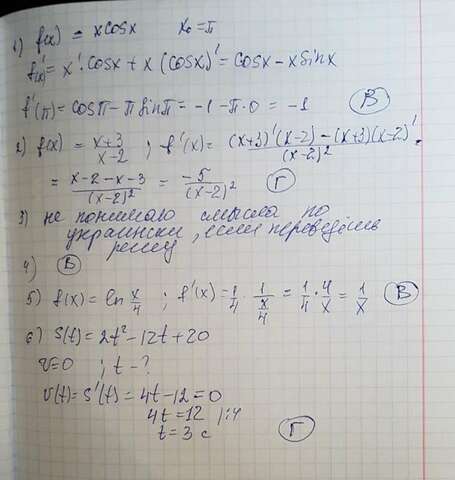 1) f(x) = xcosx x₀ = π
f'(x) = x'·cosx + x(cosx)' = cosx - xsinx
f'(π) = cosπ - πsinπ = -1 - π·0 = -1 В
2) f(x) = (x+3)/(x-2) ; f'(x) = ((x+3)'(x-2) - (x+3)(x-2)')/(x-2)² =
= (x-2-x-3)/(x-2)² = -5/(x-2)² Г
3) не понимаю смысла по
украински, если переведёшь
решу
4) В
5) f(x) = ln x/4 ; f'(x) = 1/4 · 1/(x/4) = 1/4 · 4/x = 1/x В
6) S(t) = 2t² - 12t + 20
v=0 ; t - ?
v(t) = s'(t) = 4t - 12 = 0
4t = 12 |:4
t = 3 с Г